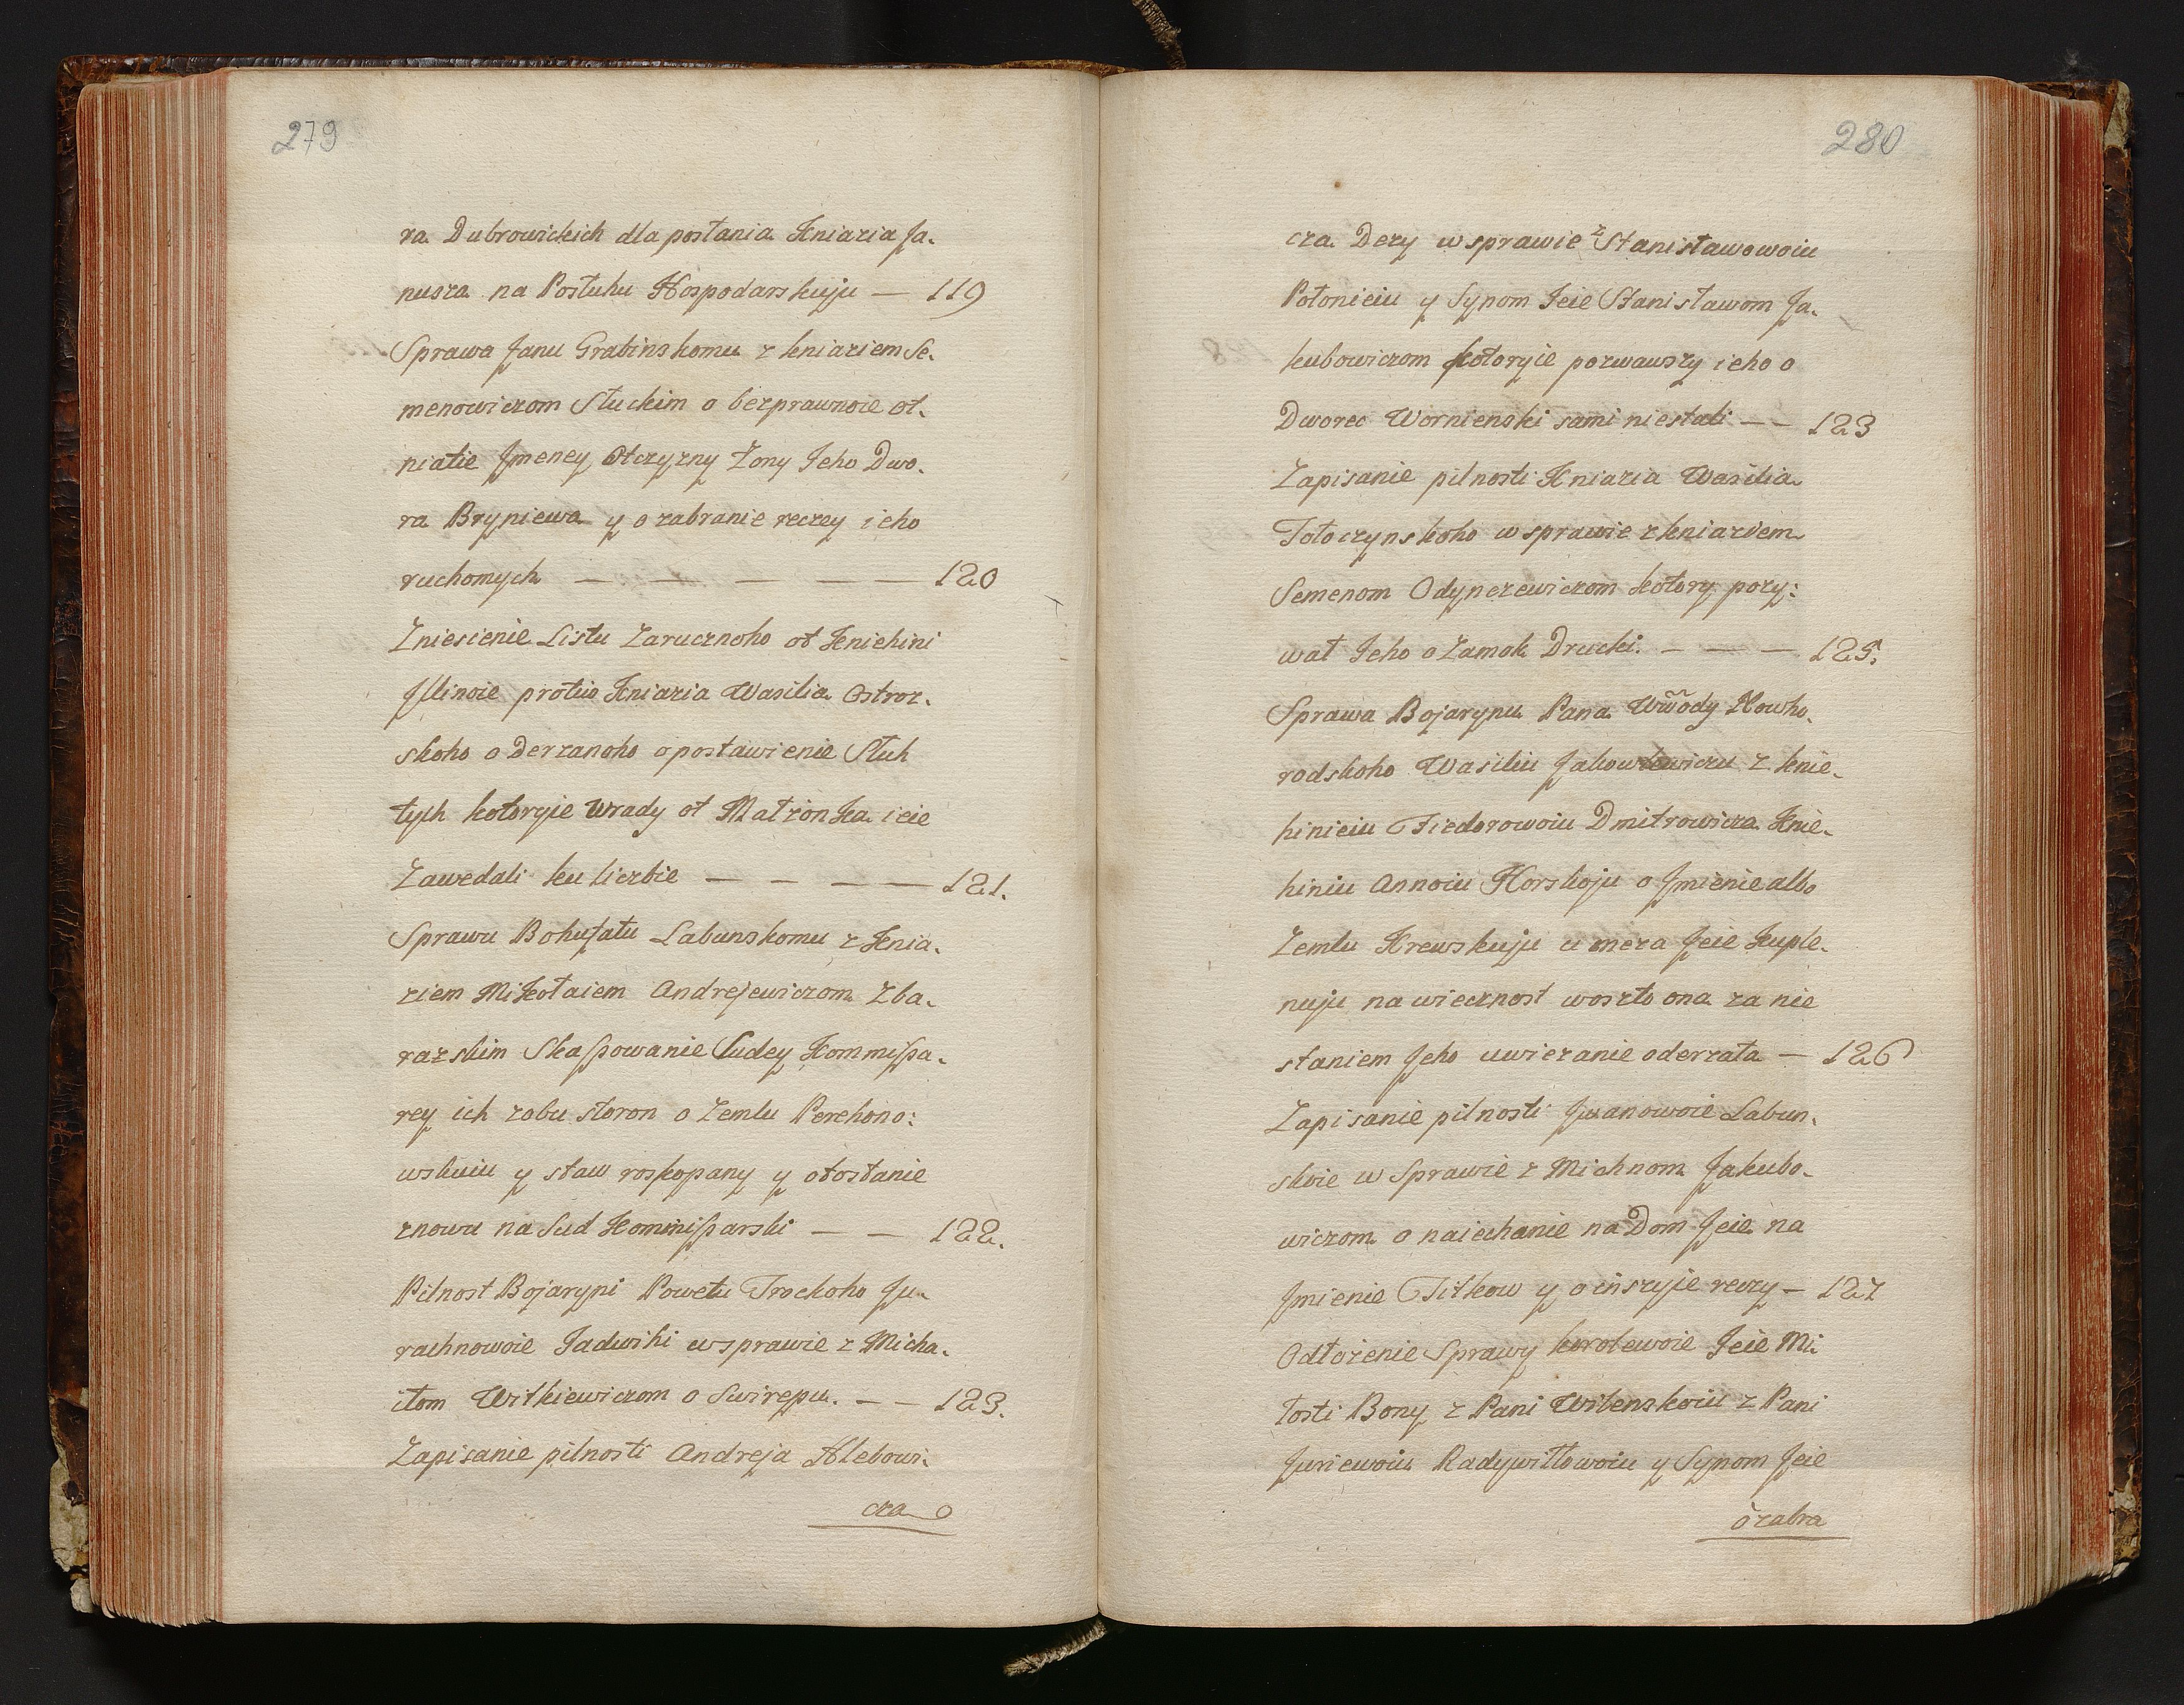 279
ra Dubrowickich dla posłania Kniazia Ja-
nusza na Posłuhu Hospodarskuju — 119
Sprawa Janu Grabinskomu z kniaziem Se-
menowiczom Słuckim o bezprawnoie ot-
niatie Jmeney Otczyzny Żony Jeho Dwo-
ra Bryniewa y o zabranie reczey ieho
ruchomych — — — — — 120
Zniesienie Listu Zarucznoho ot Kniehini
Jllinoie protiw Kniazia Wasilia Ostroz-
skoho o Derzanoho o postawienie Słuh
tych kotoryie Wrady ot Małżonka ieie
Zawedali ku liczbie — — — — 121.
Sprawa Bohufału Labunskomu z Knia-
ziem Mikołaiem Andrejewiczom Zba-
razskim Skassowanie Sudey Kommissa-
rey ich z obu storon o Zemlu Perehono:
wskuiu y staw roskopany y otosłanie
znowu na Sud Kommissarski — — 122.
Pilnost Bojaryni Powetu Trockoho Ju-
rachnowoie Jadwihi w sprawie z Micha-
iłom Witkiewiczom o Swirepu. — — 123.
Zapisanie pilnosti Andreja Hlebowi-
cza
280
cza Dezy w sprawie z Stanisławowoiu
Połonieiu y Synom Jeie Stanisławom Ja-
kubowiczom kotoryie pozwawszy ieho o
Dworec Wornienski sami niestali — — 123
Zapisanie pilnosti Kniazia Wasilia
Tołoczynskoho w sprawie z kniaziem
Semenom Odyncewiczom kotory pozy:
wał Jeho o Zamok Drucki. — — — 125.
Sprawa Bojarynu Pana Wwody Nowho-
rodskoho Wasiliu Jakowlewiczu z knie-
hinieiu Fiedorowoiu Dmitrowicza Knie-
hiniu Annoiu Horskoju o Jmienie albo
Zemlu Krewskuju u meza Jeie Kuple-
nuju na wiecznost woszto ona za nie
staniem Jeho uwiezanie oderzała — 126
Zapisanie pilnosti Jwanowoie Labun-
skoie w Sprawie z Michnom Jakubo-
wiczom o naiechanie na Dom Jeie na
Jmienie Titkow y o inszyie reczy — 127
Odłożenie Sprawy korolewoie Jeie Mi-
łosti Bony z Pani Wilenskoiu z Pani
Juriewoiu Radywiłłowoiu y Synom Jeie
o zabra